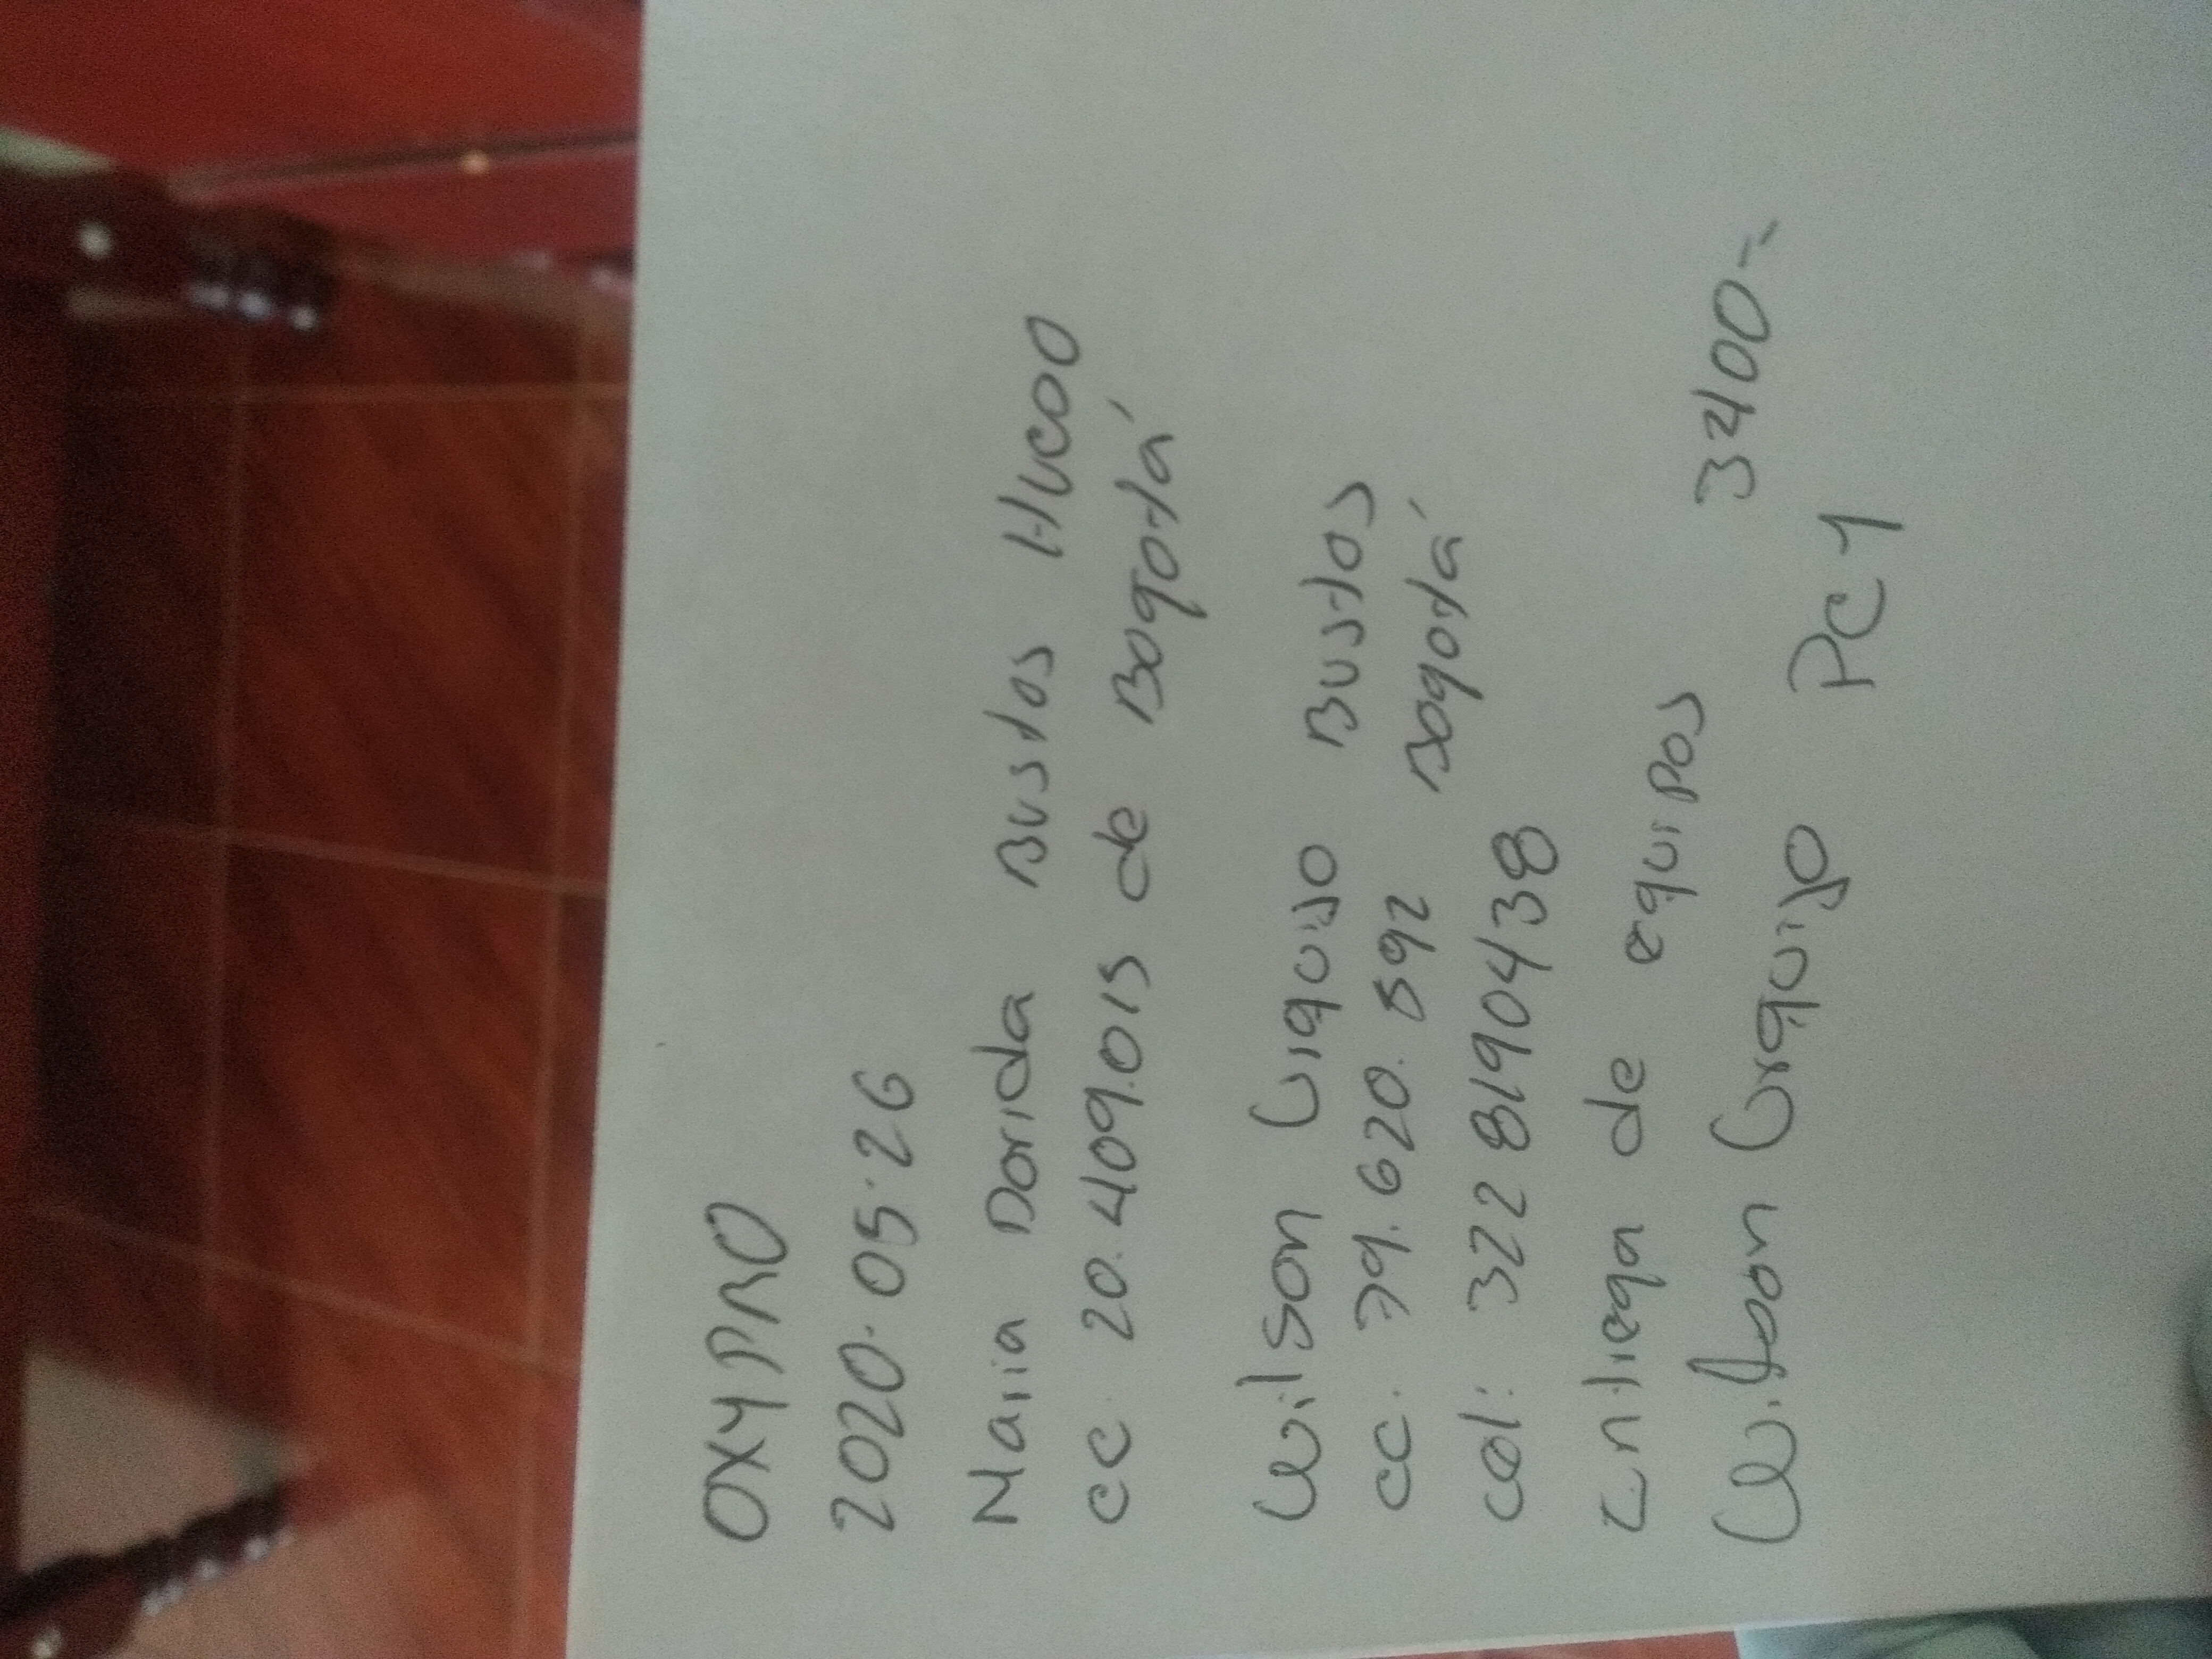 OXYPRO
2020.05.26
Maria Dorida Bustos
cc 20.409.015 de Bogotá
Wilson Urquijo Bustos
cc. 79.620.592 Bogotá
cel: 322 8190438
Entrega de equipos
3400-
Wilson Urquijo PC1